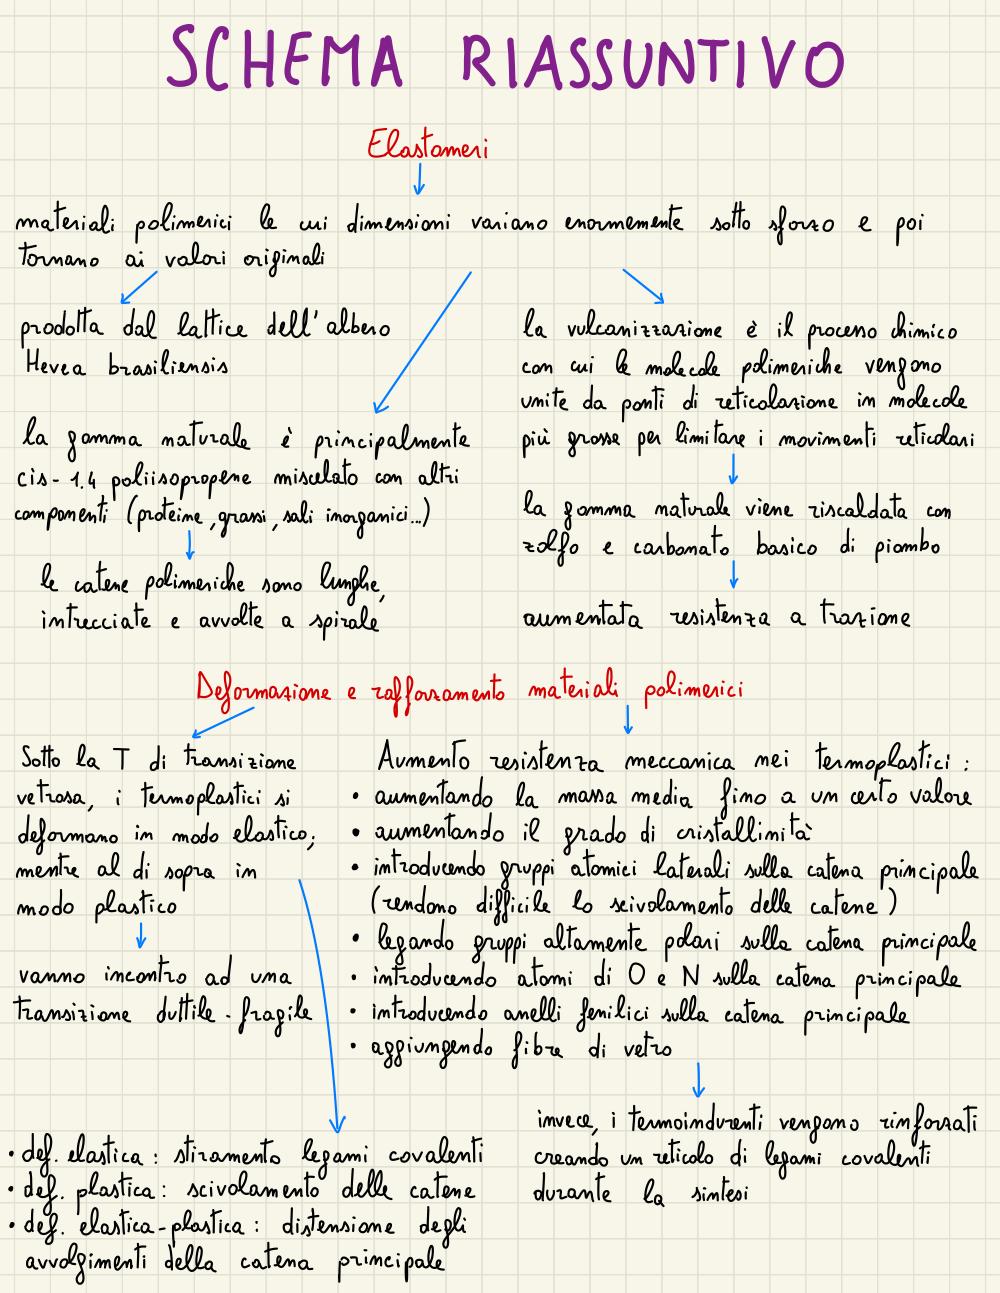 SCHEMA RIASSUNTIVO
Elastomeri
materiali polimerici le cui dimensioni variano enormemente sotto sforzo e poi
tornano ai valori originali
prodotta dal lattice dell'albero
Hevea brasiliensis
la gomma naturale è principalmente
cis-1.4 poliisopropene miscelato con altri
componenti (proteine, grassi, sali inorganici...)
le catene polimeriche sono lunghe,
intrecciate e avvolte a spirale
la vulcanizzazione è il processo chimico
con cui le molecole polimeriche vengono
unite da ponti di reticolazione in molecole
più grosse per limitare i movimenti reticolari
la gomma naturale viene riscaldata con
zolfo e carbonato basico di piombo
aumentata resistenza a trazione
Deformazione e rafforzamento materiali polimerici
Sotto la T di transizione
vetrosa, i termoplastici si
deformano in modo elastico;
mentre al di sopra in
modo plastico
vanno incontro ad una
transizione duttile-fragile
Aumento resistenza meccanica nei termoplastici:
• aumentando la massa media fino a un certo valore
• aumentando il grado di cristallinità
• introducendo gruppi atomici laterali sulla catena principale
(rendono difficile lo scivolamento delle catene)
• legando gruppi altamente polari sulla catena principale
• introducendo atomi di O e N sulla catena principale
• introducendo anelli fenilici sulla catena principale
• aggiungendo fibre di vetro
invece, i termoindurenti vengono rinforzati
creando un reticolo di legami covalenti
durante la sintesi
• def. elastica: stiramento legami covalenti
• def. plastica: scivolamento delle catene
• def. elastica-plastica: distensione degli
avvolgimenti della catena principale